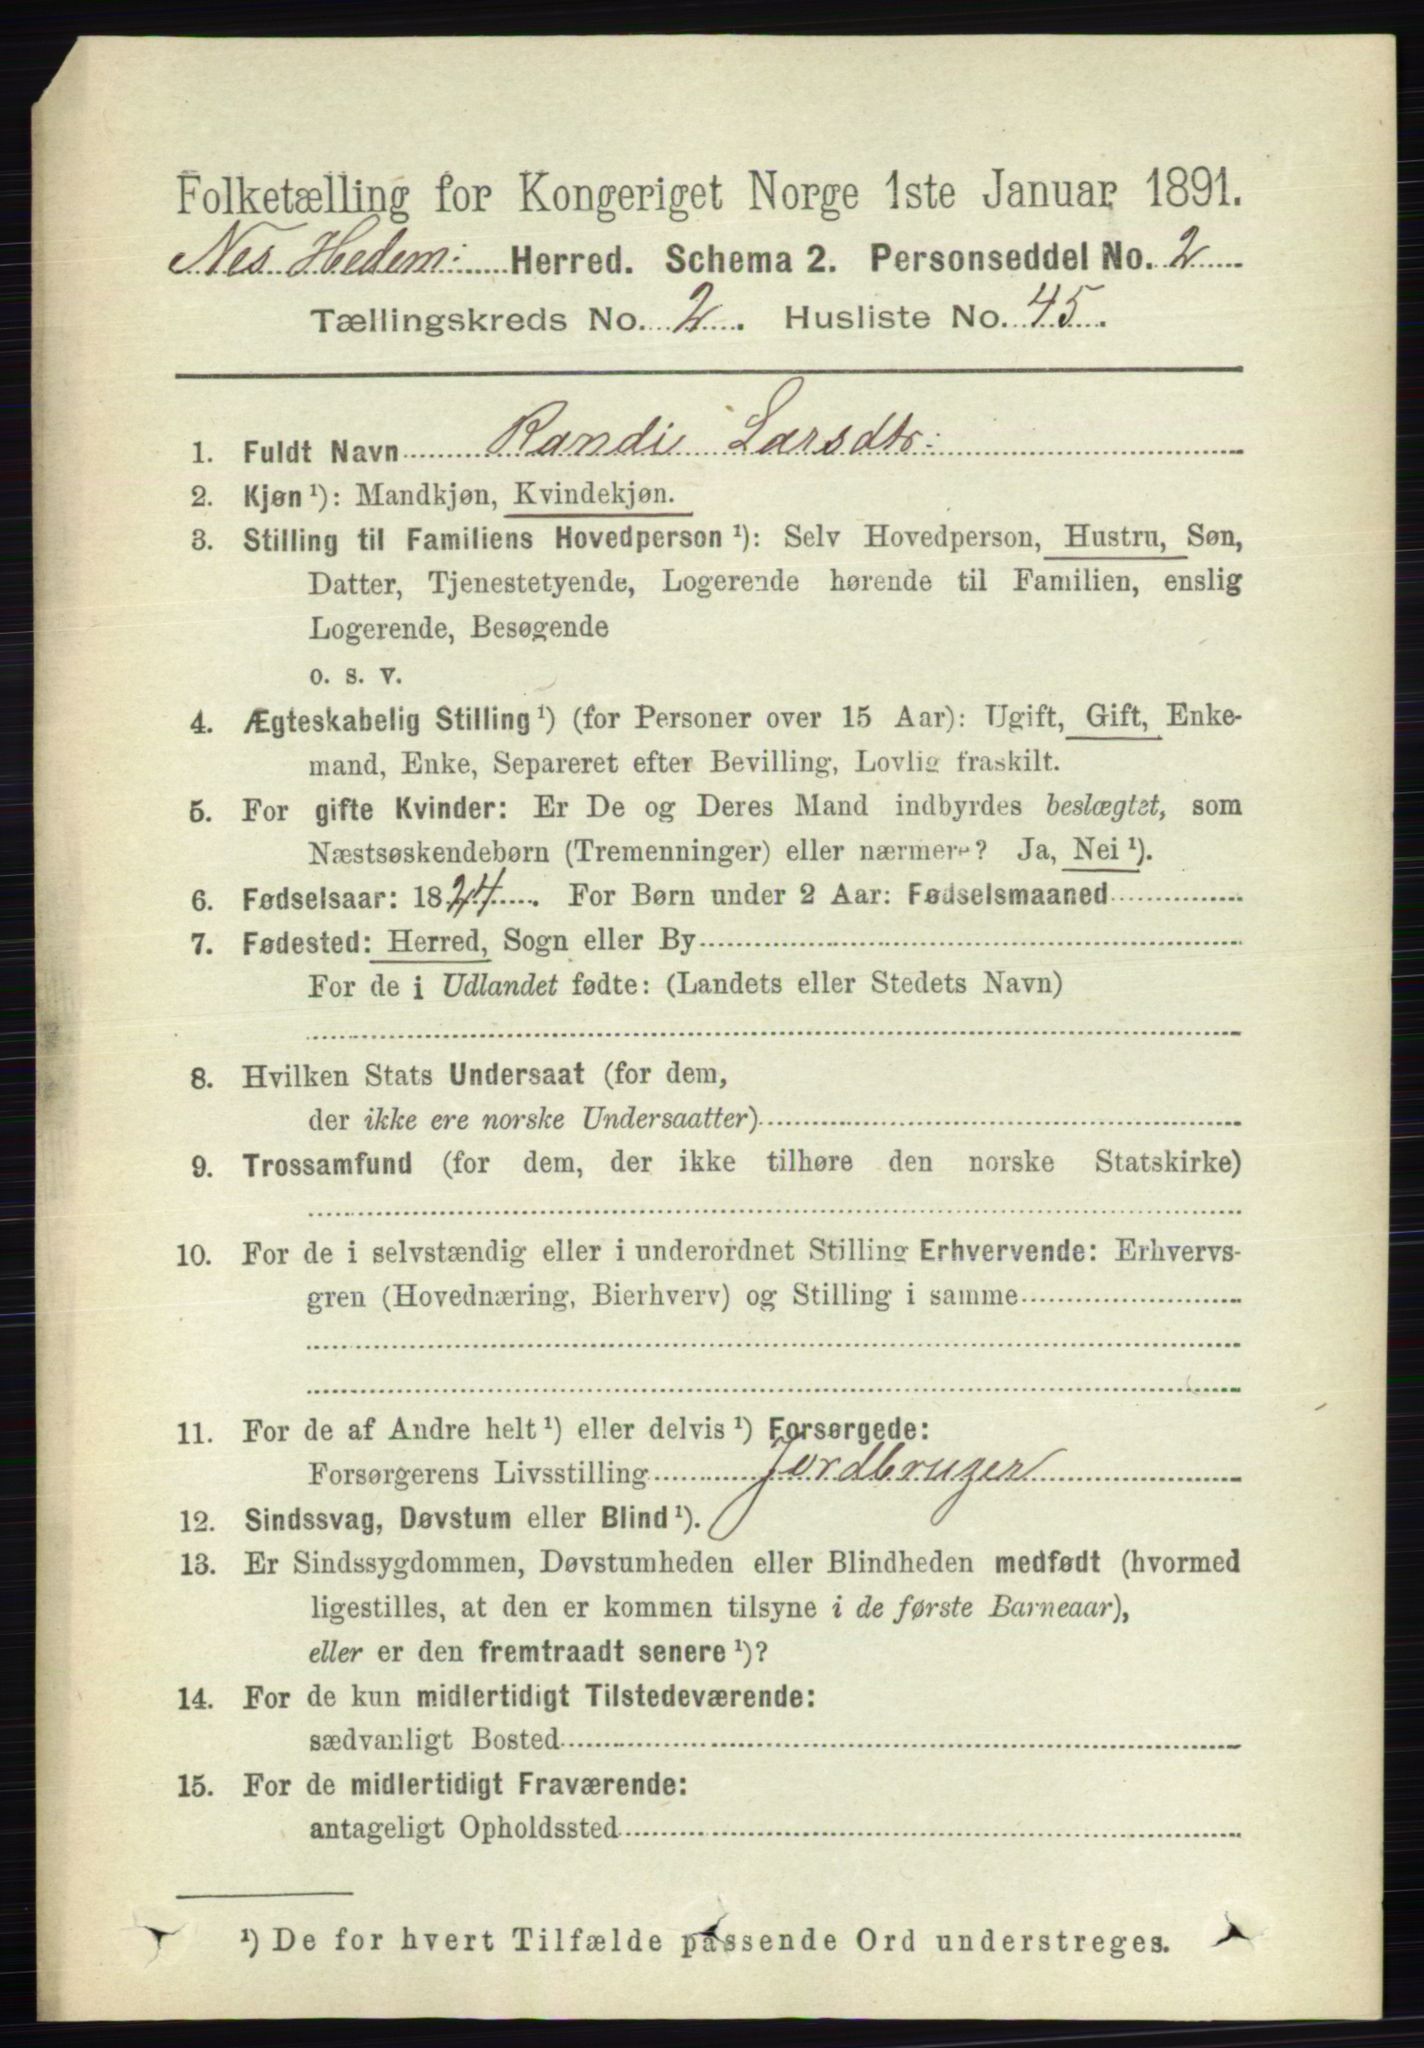 Folketælling for Kongeriget Norge 1ste Januar 1891.
Nes Hedem: Herred. Schema 2. Personseddel No. 2
Tællingskreds No. 2. Husliste No. 45.
1. Fuldt Navn Randi Larsdtr:
2. Kjøn ¹): Mandkjøn, Kvindekjøn.
3. Stilling til Familiens Hovedperson ¹): Selv Hovedperson, Hustru, Søn,
Datter, Tjenestetyende, Logerende hørende til Familien, enslig
Logerende, Besøgende
o. s. v.
4. Ægteskabelig Stilling ¹) (for Personer over 15 Aar): Ugift, Gift, Enke-
mand, Enke, Separeret efter Bevilling, Lovlig fraskilt.
5. For gifte Kvinder: Er De og Deres Mand indbyrdes beslægtet, som
Næstsøskendebørn (Tremenninger) eller nærmere? Ja, Nei ¹).
6. Fødselsaar: 1824. For Børn under 2 Aar: Fødselsmaaned
7. Fødested: Herred, Sogn eller By
For de i Udlandet fødte: (Landets eller Stedets Navn)
8. Hvilken Stats Undersaat (for dem,
der ikke ere norske Undersaatter)
9. Trossamfund (for dem, der ikke tilhøre den norske Statskirke)
10. For de i selvstændig eller i underordnet Stilling Erhvervende: Erhvervs-
gren (Hovednæring, Bierhverv) og Stilling i samme
11. For de af Andre helt ¹) eller delvis ¹) Forsørgede:
Forsørgerens Livsstilling Jordbruger
12. Sindssvag, Døvstum eller Blind ¹).
13. Er Sindssygdommen, Døvstumheden eller Blindheden medfødt (hvormed
ligestilles, at den er kommen tilsyne i de første Barneaar),
eller er den fremtraadt senere ¹)?
14. For de kun midlertidigt Tilstedeværende:
sædvanligt Bosted
15. For de midlertidigt Fraværende:
antageligt Opholdssted
¹) De for hvert Tilfælde passende Ord understreges.